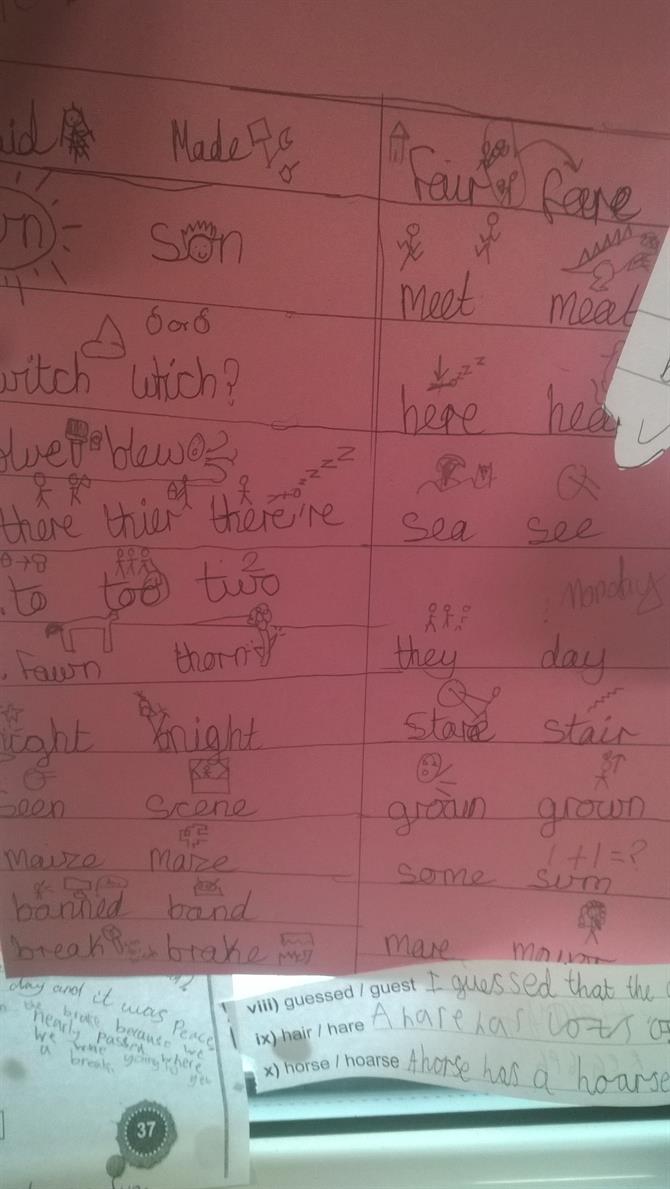 Made
Fair
Son
meet meat
witch which?
or
here
blew
there thier there're
zzzz
sea see
to too two
2
Monday
Fawn thorn
they day
knight
stare stair
scene
groan grown
maize maze
1+1=?
some sum
banned band
break brake
mare
day and it was Peace
the brake because we
nearly passed where
we were going to
a break. yey
37
viii) guessed / guest I guessed that the
ix) hair / hare A hare has
x) horse / hoarse A horse has a hoarse